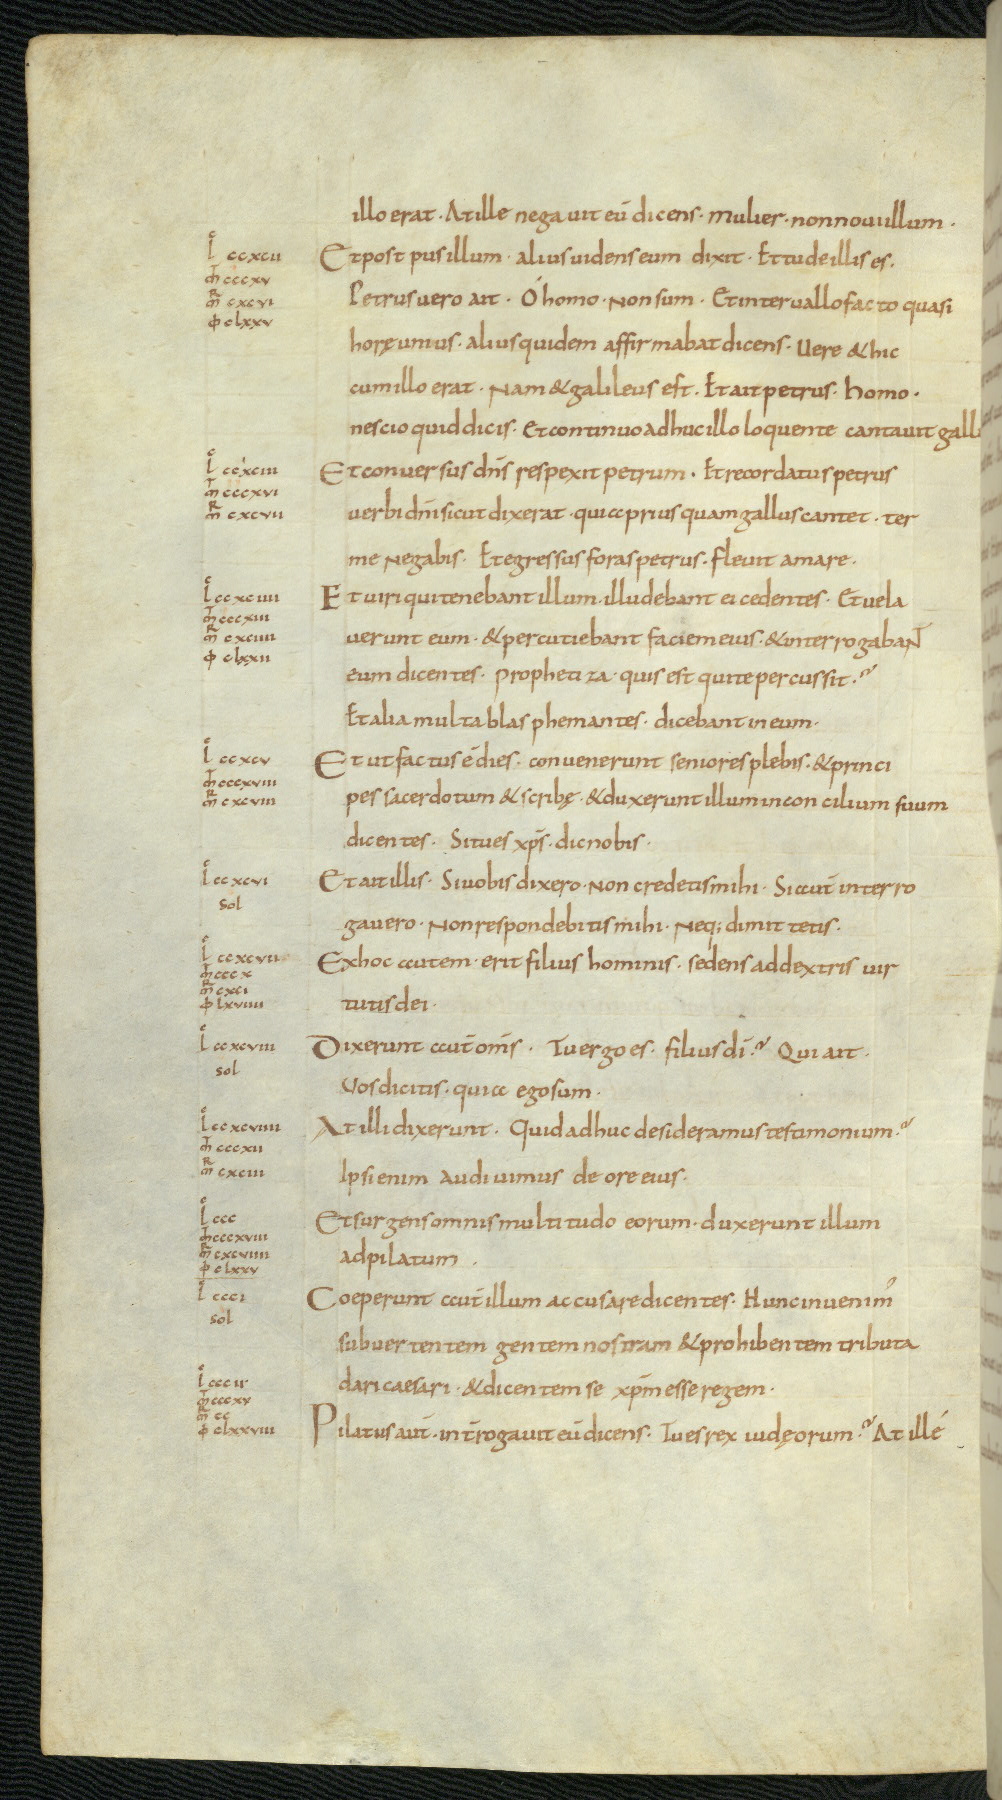 illo erat · At ille negauit eū dicens · mulier · non noui illum ·
Lͨ ccxcii Et post pusillum · alius uidens eum dixit · Et tu de illis es ·
m̄ͭ cccxv
m̄ᴿ cxcvi Petrus uero ait · Ó homo · Non sum · Et interuallo facto quasi
φ clxxv
horę unius · alius quidem affirmabat dicens · Uere & hic
cum illo erat · Nam & galileus est · Et ait petrus · homo ·
nescio quid dicis · Et continuo adhuc illo loquente cantauit gall
Lͨ ccxciii Et conuersus dn̄s respexit petrum · Et recordatus petrus
m̄ͭ cccxvi
m̄ᴿ cxcvii uerbi dn̄i sicut dixerat · quia priusquam gallus cantet · ter
me negabis · Et egressus foras petrus · fleuit amare ·
Lͨ ccxciiii Et uiri qui tenebant illum · illudebant ei cedentes · Et uela
m̄ͭ cccxiii
m̄ᴿ cxciiii uerunt eum · & percutiebant faciem eius · & interrogabant
φ clxxii
eum dicentes · Prophetiza · quis est qui te percussit ·?
Et alia multa blasphemantes · dicebant in eum ·
Lͨ ccxcv Et ut factus ē dies · conuenerunt seniores plebis · & princi
m̄ͭ cccxviii
m̄ᴿ cxcviii pes sacerdotum & scribę · & duxerunt illum in concilium suum
dicentes · Si tu es xp̄s · dic nobis ·
Lͨ ccxcvi Et ait illis · Si uobis dixero · Non credetis mihi · Si aut̄ interro
sol
gauero · Non respondebitis mihi · Neq; dimittetis ·
Lͨ ccxcvii Ex hoc autem · erit filius hominis · sedens ad dextris uir
m̄ͭ cccx
m̄ᴿ cxci
φ lxviiii tutis dei ·
Lͨ ccxcviii Dixerunt aut̄ om̄s · Tu ergo es · filius dī ·? Qui ait ·
sol
Vos dicitis · quia ego sum ·
Lͨ ccxcviiii At illi dixerunt · Quid adhuc desideramus testimonium ·?
m̄ͭ cccxii
m̄ᴿ cxciii Ipsi enim audiuimus de ore eius ·
Lͨ ccc Et surgens omnis multitudo eorum · duxerunt illum
m̄ͭ cccxviii
m̄ᴿ cxcviiii ad pilatum ·
φ clxxv
Lͨ ccci Coeperunt aut̄ illum accusare dicentes · Hunc inuenim'
sol
subuertentem gentem nostram & prohibentem tributa
Lͨ cccii dari caesari · & dicentem se xp̄m esse regem ·
m̄ͭ cccxv
m̄ᴿ cc
φ clxxviii Pilatus aut̄ · int̄rogauit eū dicens · Tu es rex iudęorum ·? At ille